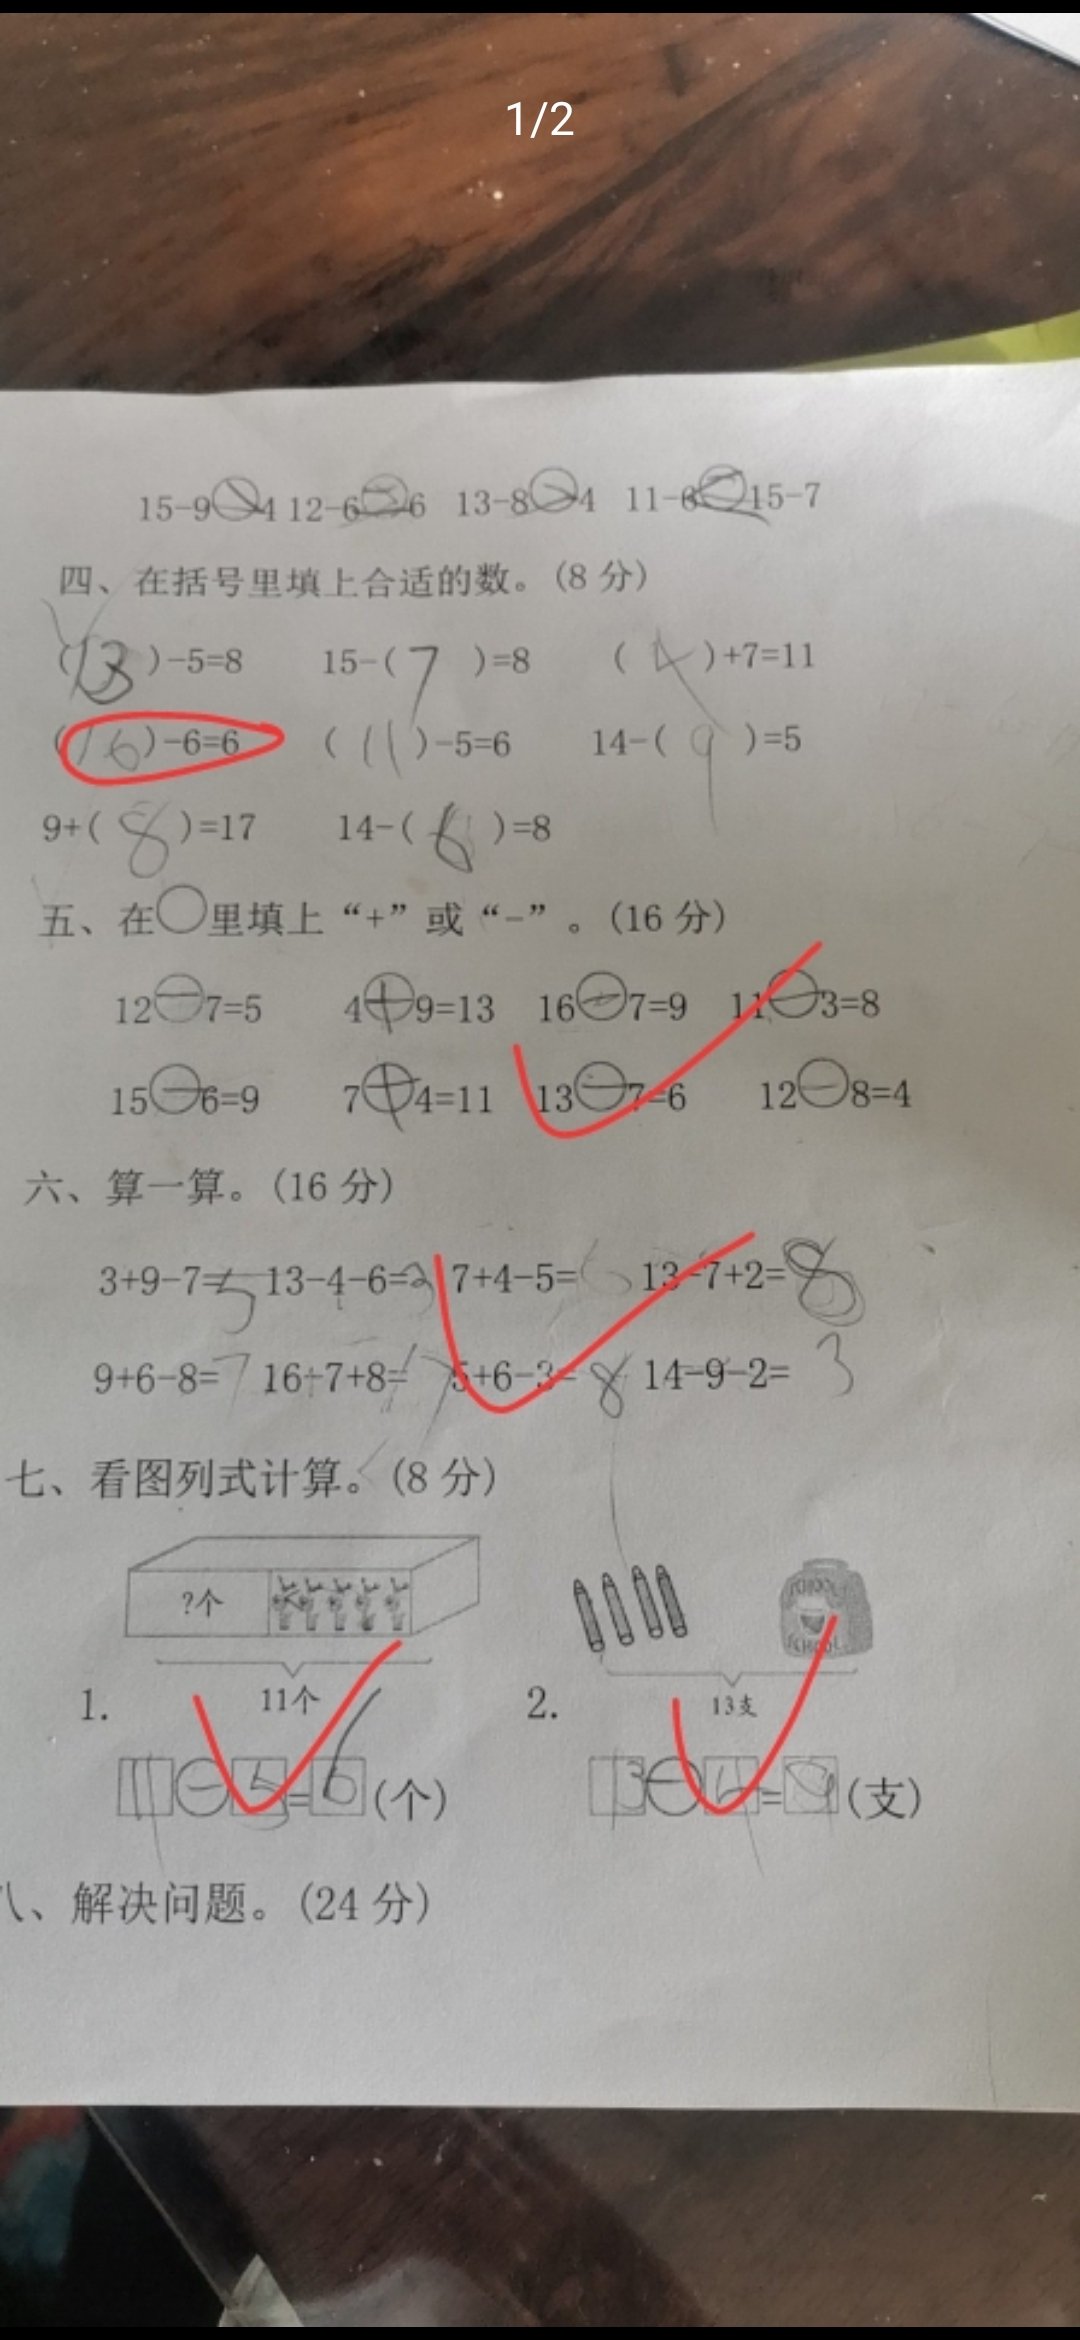 1/2
15-9>4 12-6=6 13-8>4 11-6<15-7
四、在括号里填上合适的数。(8 分)
(13)-5=8 15-(7)=8 (4)+7=11
(16)-6=6 (11)-5=6 14-(9)=5
9+(8)=17 14-(6)=8
五、在○里填上“+”或“-”。(16 分)
12-7=5 4+9=13 16-7=9 11-3=8
15-6=9 7+4=11 13-7=6 12-8=4
六、算一算。(16 分)
3+9-7=5 13-4-6=3 7+4-5=6 13-7+2=8
9+6-8=7 16-7+8=17 5+6-3=8 14-9-2=3
七、看图列式计算。(8 分)
?个
SCHOOL
SCHOOL
1. 11个 2. 13支
11-5=6(个) 13-4=9(支)
八、解决问题。(24 分)